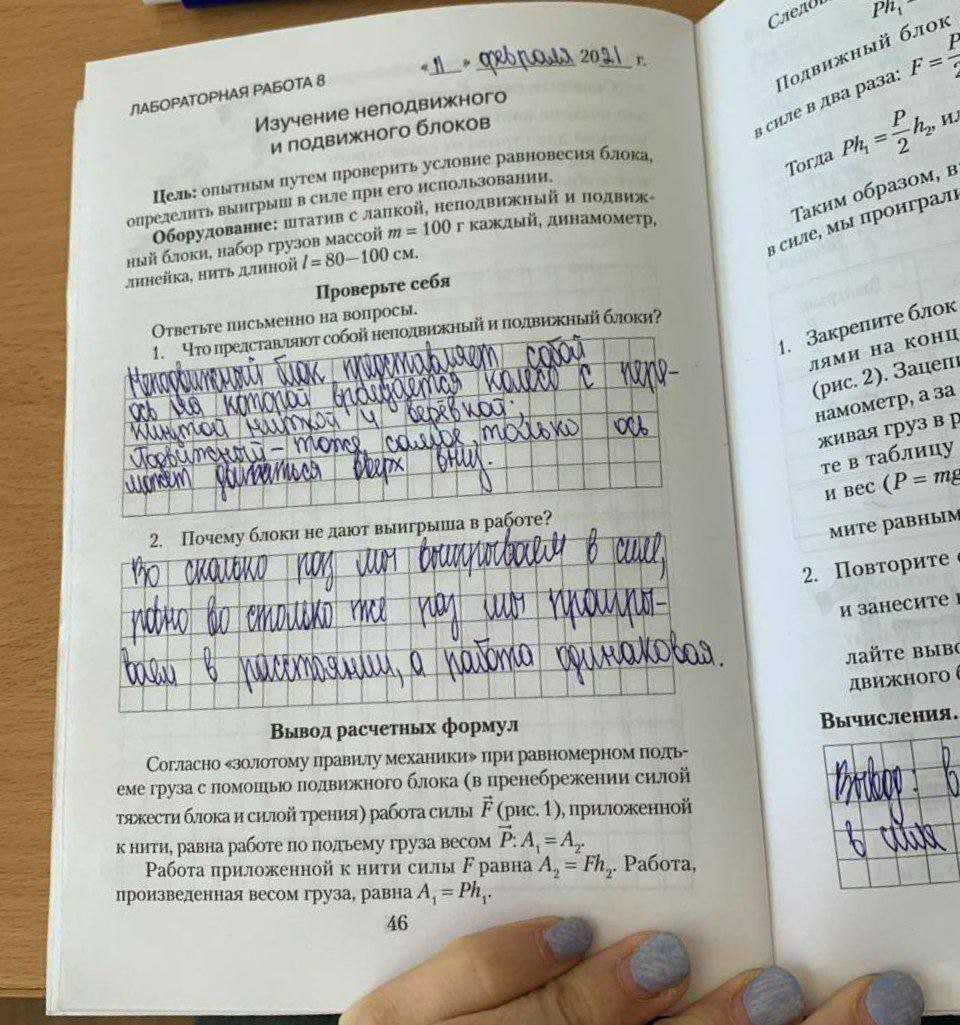 ЛАБОРАТОРНАЯ РАБОТА 8
«11» февраля 2021 г.
Изучение неподвижного
и подвижного блоков
Цель: опытным путем проверить условие равновесия блока,
определить выигрыш в силе при его использовании.
Оборудование: штатив с лапкой, неподвижный и подвиж-
ный блоки, набор грузов массой m = 100 г каждый, динамометр,
линейка, нить длиной l = 80—100 см.
Проверьте себя
Ответьте письменно на вопросы.
1. Что представляют собой неподвижный и подвижный блоки?
Неподвижный блок представляет собой
ось на которой вращается колесо с пере-
кинутой ниткой и верёвкой;
Подвижный – тоже самое, только ось
может двигаться вверх вниз.
2. Почему блоки не дают выигрыша в работе?
Во сколько раз мы выигрываем в силе,
ровно во столько же раз мы проигры-
ваем в расстоянии, а работа одинаковая.
Вывод расчетных формул
Согласно «золотому правилу механики» при равномерном подъ-
еме груза с помощью подвижного блока (в пренебрежении силой
тяжести блока и силой трения) работа силы F⃗ (рис. 1), приложенной
к нити, равна работе по подъему груза весом P⃗: A₁ = A₂.
Работа приложенной к нити силы F равна A₂ = Fh₂. Работа,
произведенная весом груза, равна A₁ = Ph₁.
46
Ph₁ =
Подвижный блок
в силе в два раза: F = P/2
Тогда Ph₁ = P/2 h₂, ил
Таким образом, в
в силе, мы проиграли
1. Закрепите блок
лями на конц
(рис. 2). Зацепи
намометр, а за
живая груз в р
те в таблицу
и вес (P = mg
мите равным
2. Повторите
и занесите
лайте выво
движного б
Вычисления.
Вывод: в
в силе